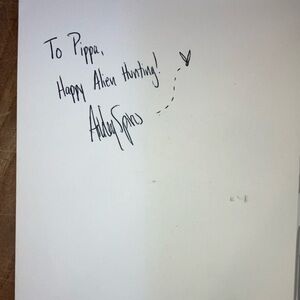 To Pippa,
Happy Alien Hunting!